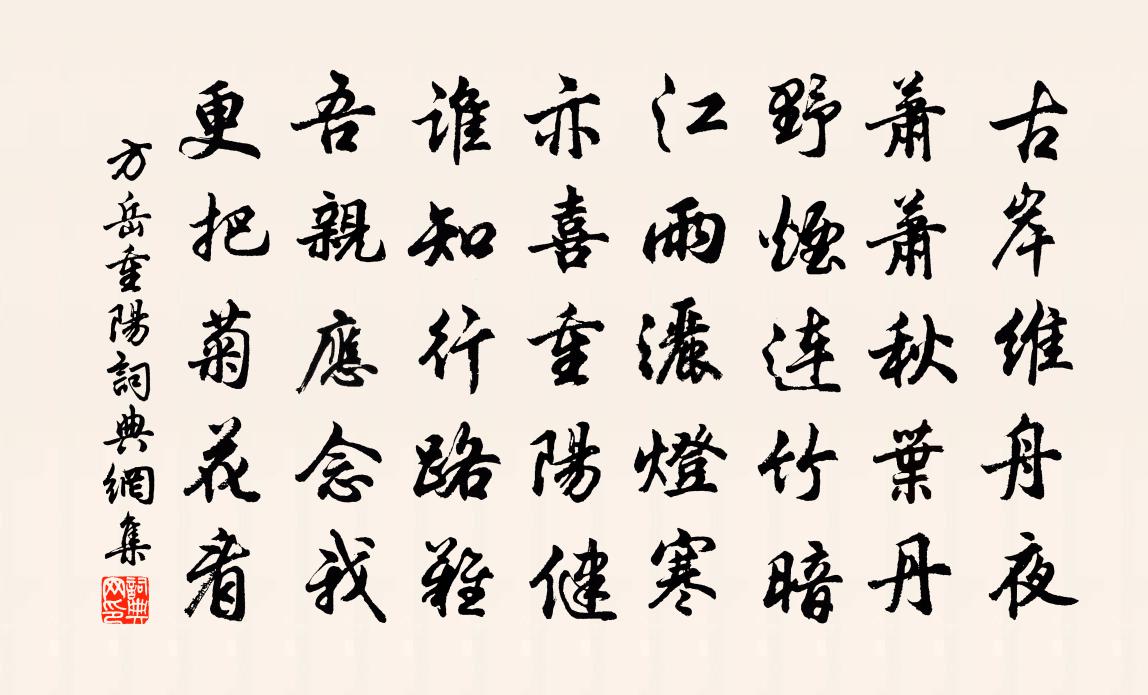 古岸維舟夜
蕭蕭秋葉丹
野煙連竹暗
江雨灑燈寒
亦喜重陽健
誰知行路難
吾親應念我
更把菊花看
方岳重陽詞典網集
詞典
网印